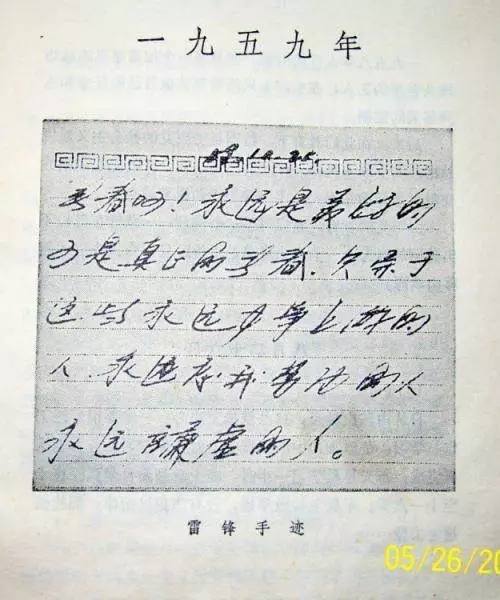 一九五九年
59.10.25.
青春啊!永远是美好的
可是真正的青春、只属于
这些永远力争上游的
人、永远忘我劳动的人
永远谦虚的人。
雷锋手迹
05/26/20